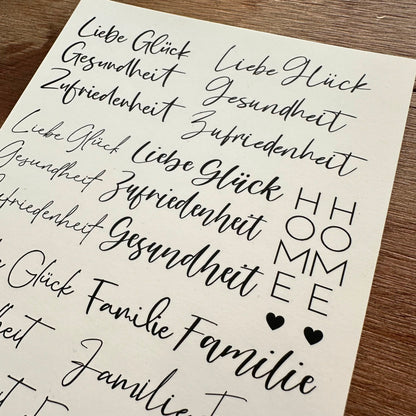 Liebe Glück
Gesundheit
Zufriedenheit
Liebe Glück
Gesundheit
Zufriedenheit
Liebe Glück
Gesundheit
Zufriedenheit
Liebe Glück
Zufriedenheit
Gesundheit
HOME
HOME
Glück
Familie
Familie
Familie